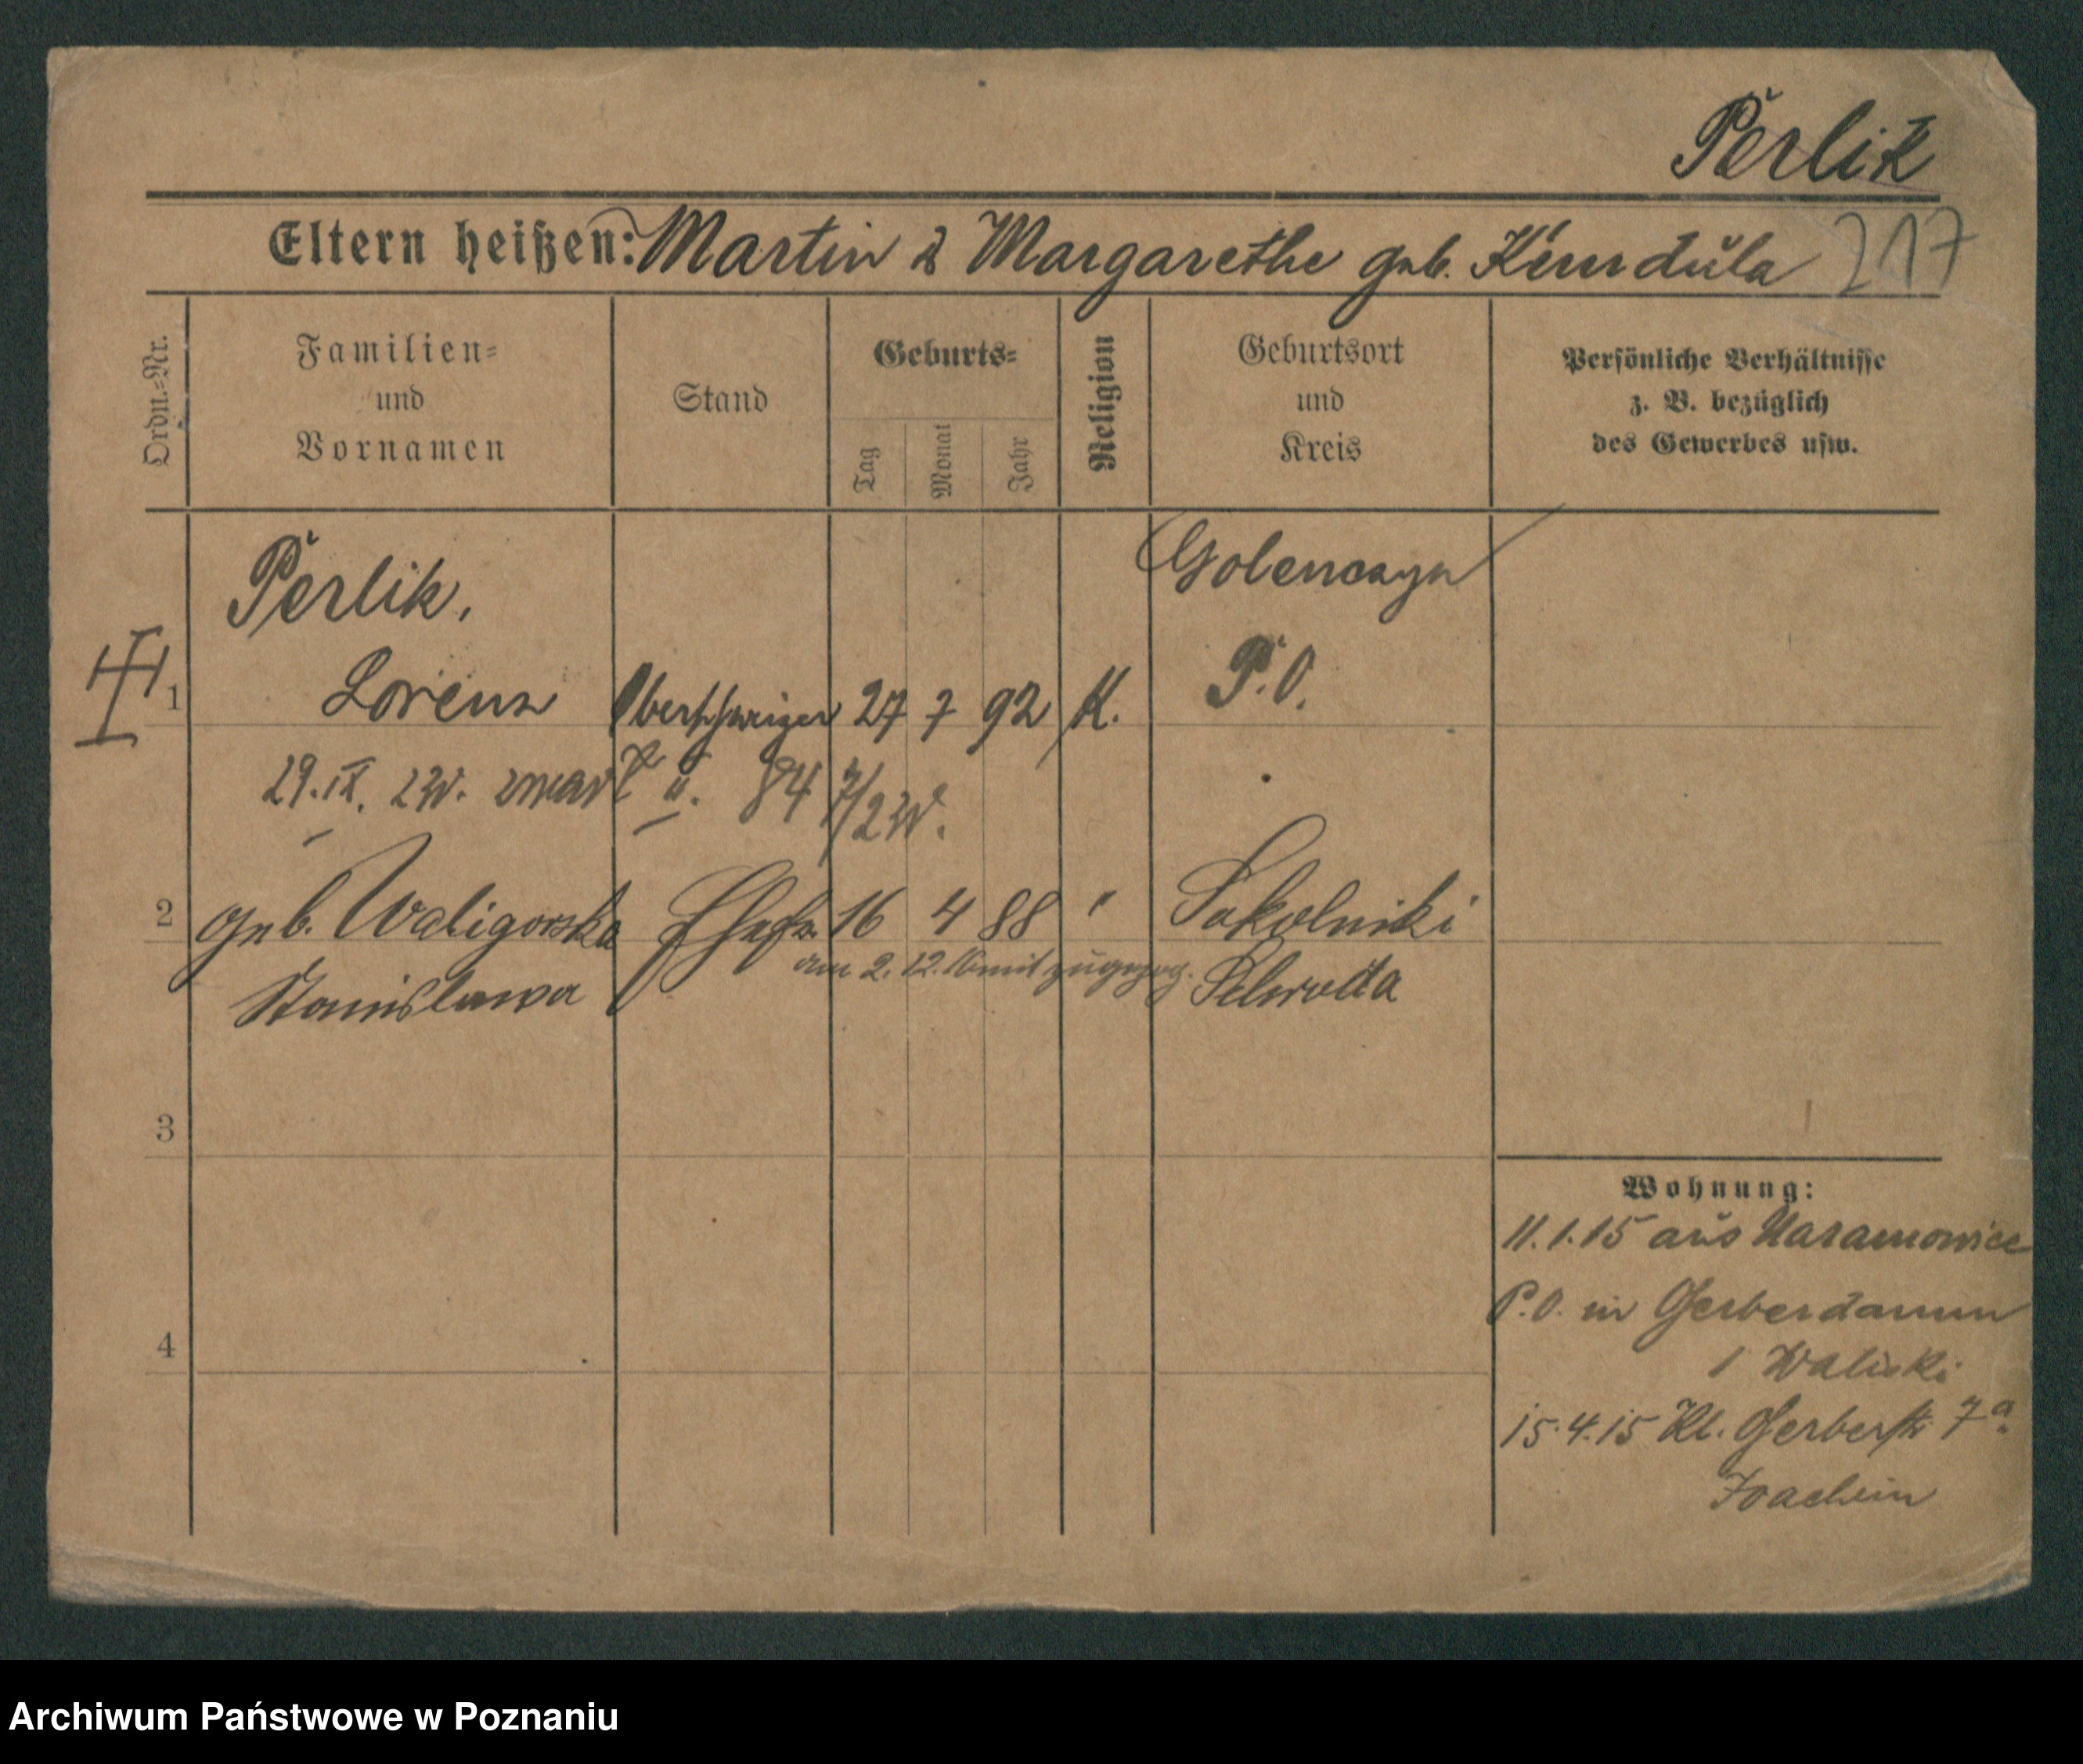 Perlik
Eltern heißen: Martin & Margarethe geb. Kendula
217
Ordn.-Nr.
Familien- und Vornamen
Stand
Geburts-
Tag
Monat
Jahr
Religion
Geburtsort und Kreis
Persönliche Verhältnisse
z. B. bezüglich
des Gewerbes usw.
Perlik,
Golenczyn
1 Lorenz 27 7 92 K. P.O.
29. IX. zmarł
2 geb. Waligorska Ehefr. 16 4 88 " Sokolniki
am 2. 12. 16 mit zugezog.
Stanislawa Schroda
3
4
Wohnung:
11.1.15 aus Naramowice
P.O. in Gerberdamm
1 Walicki
15.4.15 Kl. Gerberstr 7a
Joachim
Archiwum Państwowe w Poznaniu